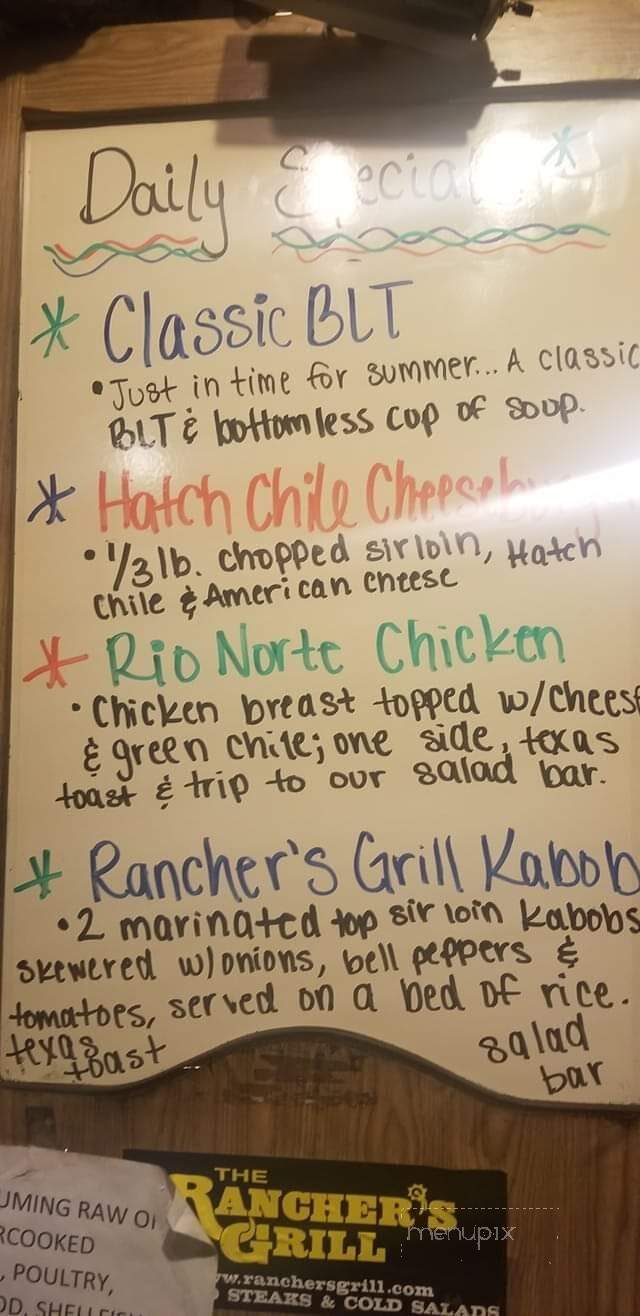 Daily Specials
* Classic BLT
• Just in time for summer... A classic
BLT & bottomless cup of soup.
* Hatch Chile Cheeseb
• 1/3 lb. chopped sirloin, Hatch
Chile & American cheese
* Rio Norte Chicken
• Chicken breast topped w/cheese
& green chile; one side, texas
toast & trip to our salad bar.
* Rancher's Grill Kabob
• 2 marinated top sirloin kabobs
skewered w/onions, bell peppers &
tomatoes, served on a bed of rice.
texas toast
salad bar
THE
RANCHER'S
GRILL
w.ranchersgrill.com
STEAKS & COLD SALADS
UMING RAW OR
RCOOKED
, POULTRY,
OD, SHELLFISH
menupix